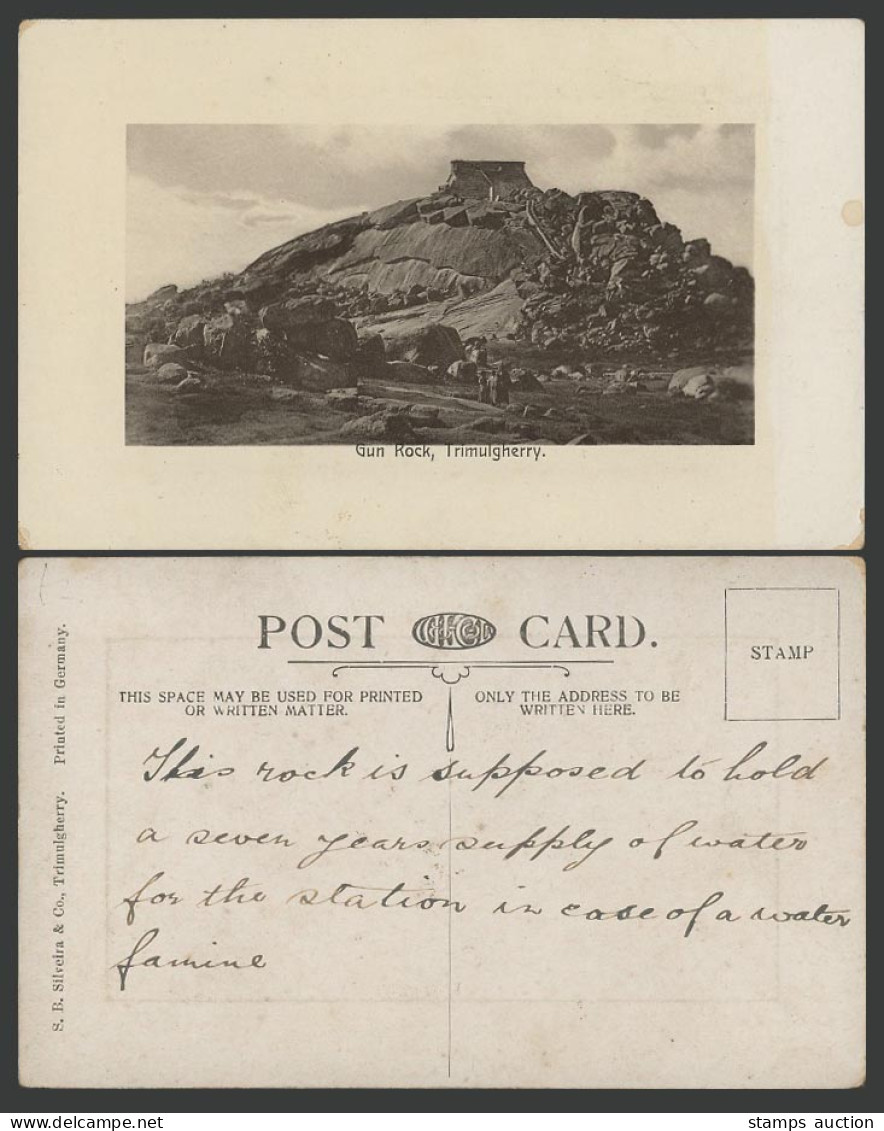 Gun Rock, Trimulgherry.
POST CARD.
STAMP
THIS SPACE MAY BE USED FOR PRINTED
OR WRITTEN MATTER.
ONLY THE ADDRESS TO BE
WRITTEN HERE.
This rock is supposed to hold
a seven years supply of water
for the station in case of a water
famine
S. B. Silveira & Co., Trimulgherry. Printed in Germany.
stamps auction